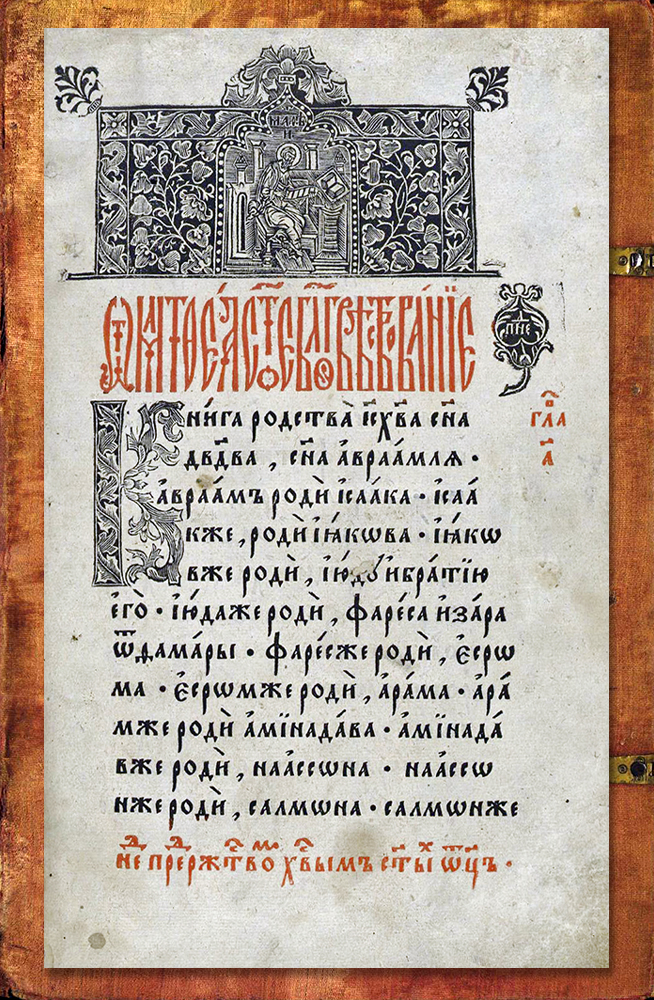 МАТѲ
И
Ѿ МАТѲЕꙗ СТ҃ОЕ БЛГ҃ОВѢСТВОВАНЇЕ
ПНЕ
Кни́га родства̀ і҆с҃ хв҃а сн҃а
дв҃два , сн҃а а҆враа́млѧ ·
а҆враа́мъ родѝ і҆саа́ка · і҆саа́
кже , родѝ і҆ꙗ́кѡва · і҆ꙗ́кѡ
вже родѝ , і҆ю́дꙋ и҆бра́тїю
е҆го̀ · і҆ю́даже родѝ , фаре́са и҆за́ра
ѿѳама́ры · фаре́сже родѝ , є҆срѡ
ма · є҆срѡмже родѝ , а҆ра́ма · а҆ра́
мже родѝ а҆мїнада́ва · а҆мїнада́
вже родѝ , наассѡ́на · наассѡ́
нже родѝ , салмѡ́на · салмѡ́нже
гла҃
а҃
неⷣ преⷣ ржⷭтво хⷭвымъ ст҃ыⷯ ѿц҃ъ ·